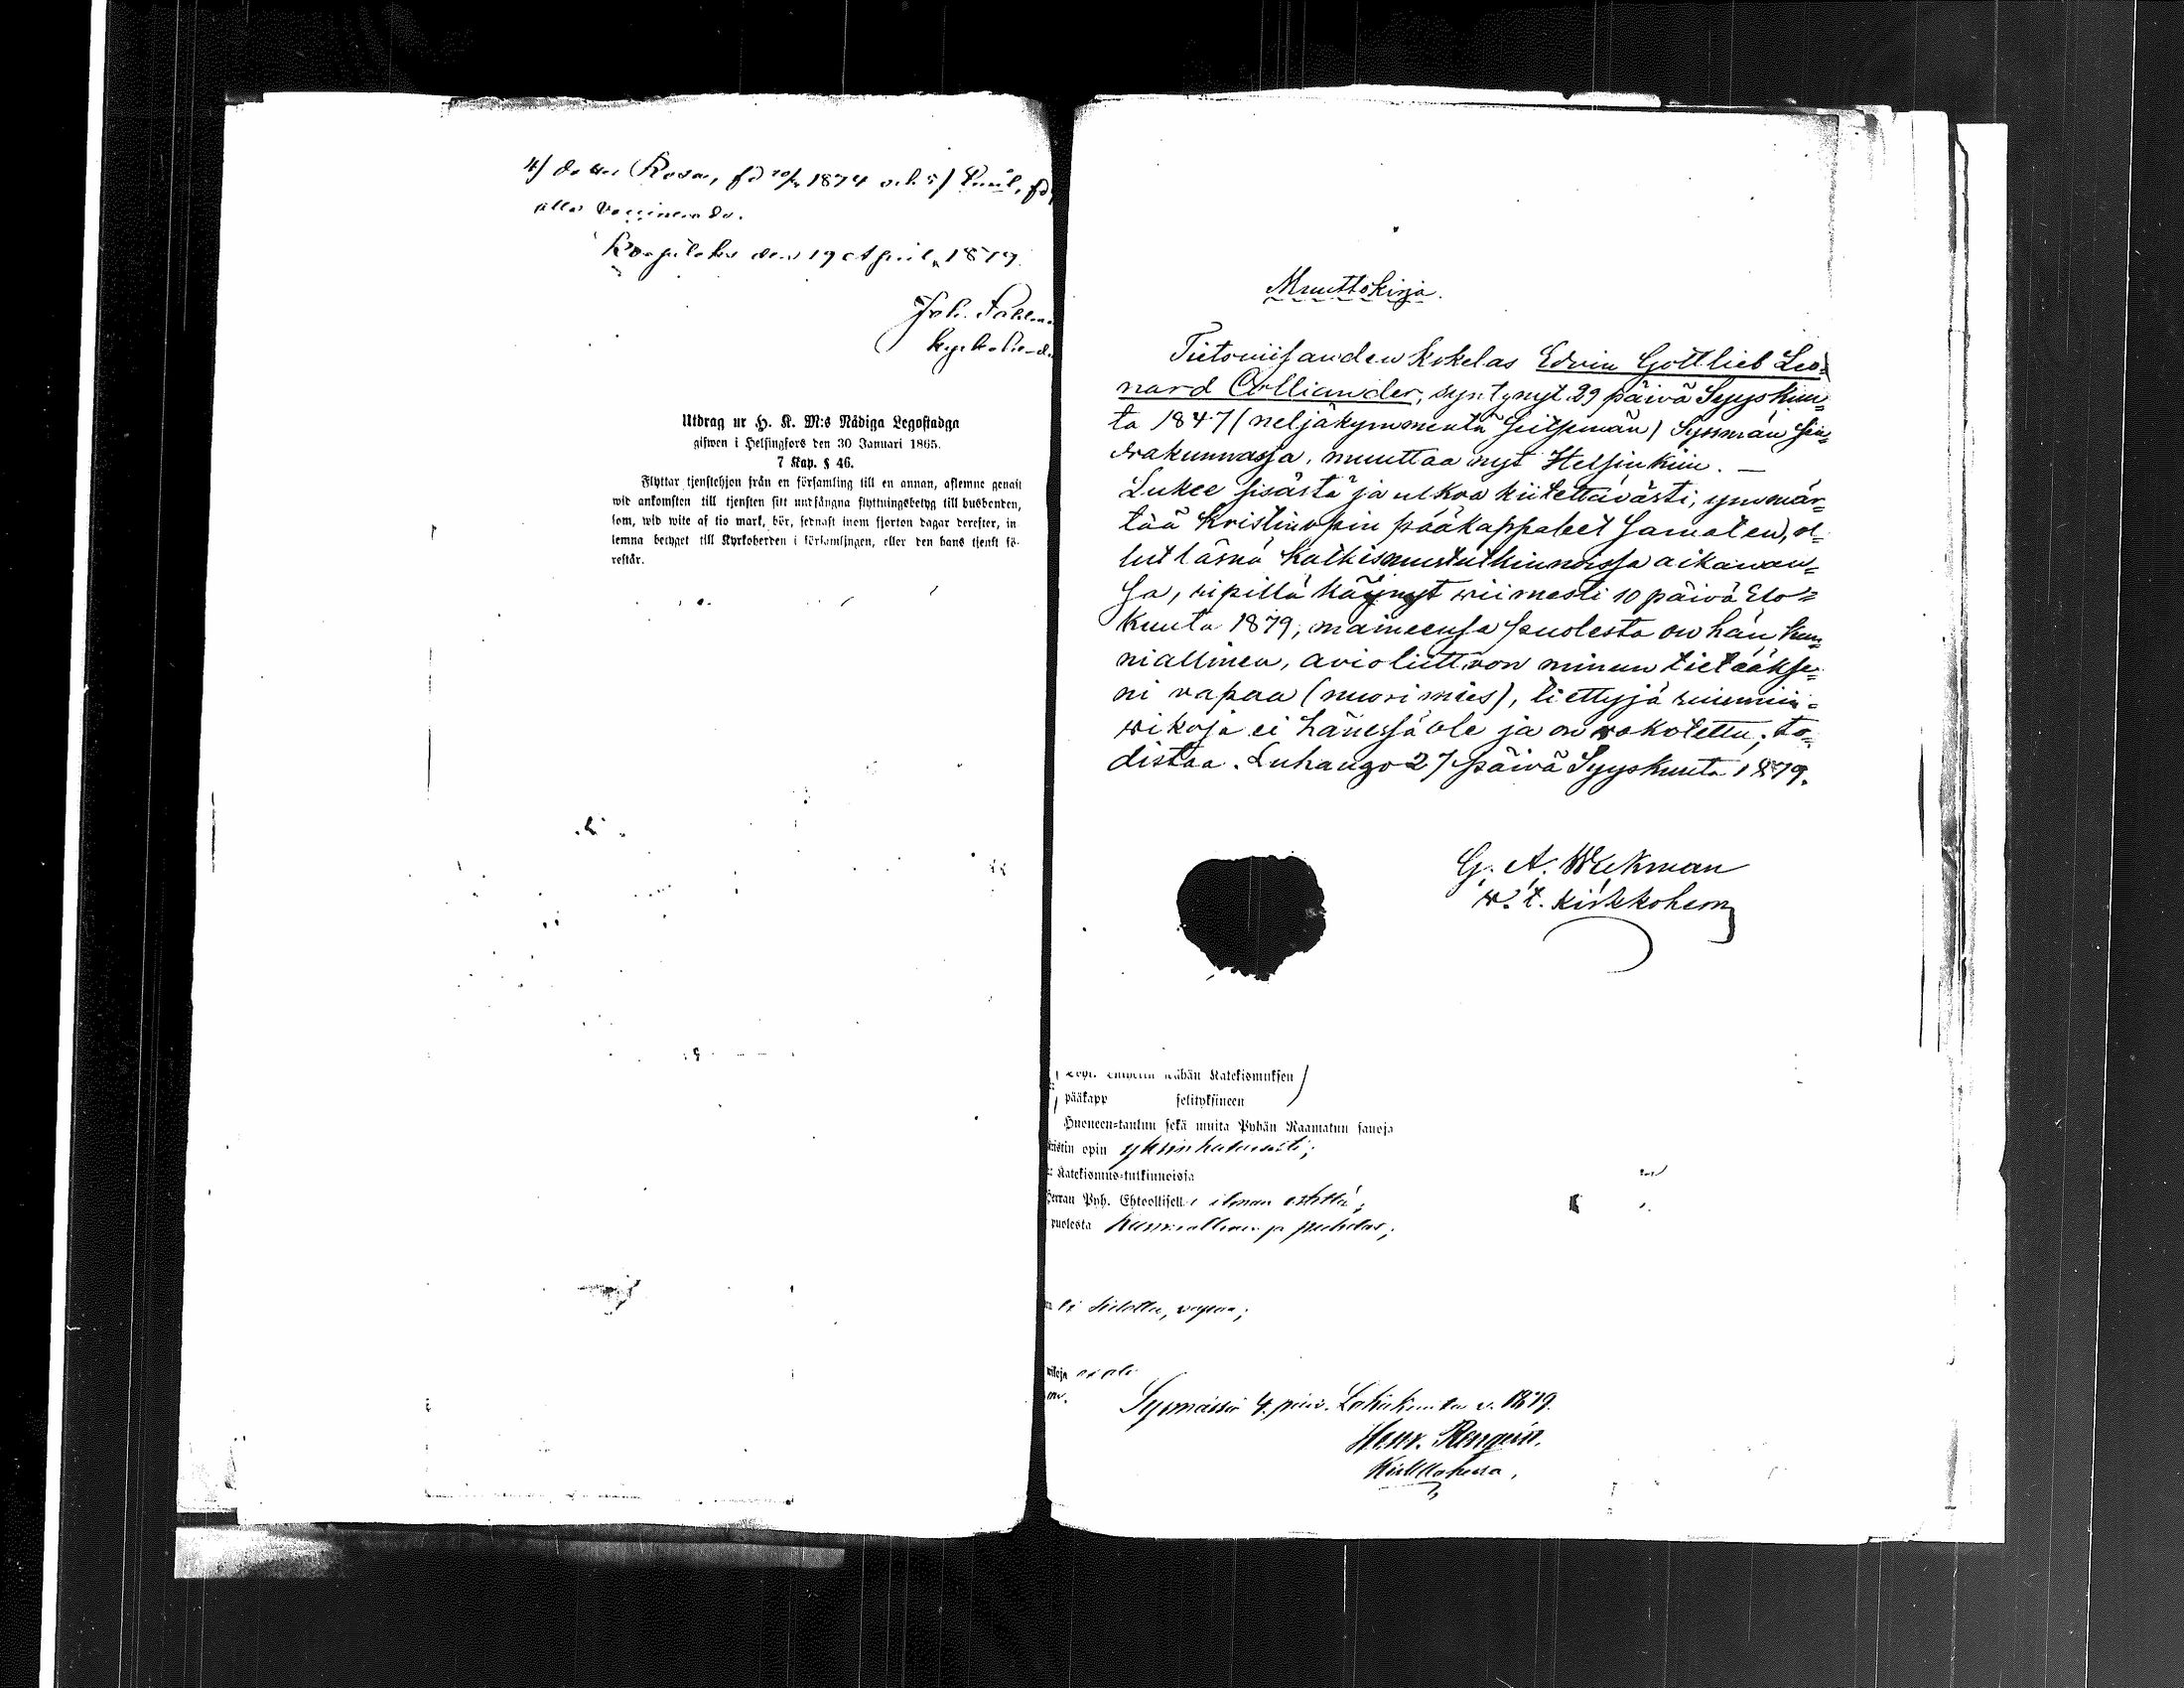 4) do ter Rosa, fd 20/4 1874 och 5) Paul, fd
alla vaccinerade.
Korpilaks den 19 April 1879.
Joh.
kyrkoherde
Utdrag ur H. K. M:s Nådiga Legostadga
gifwen i Helsingfors den 30 Januari 1865.
7 Kap. § 46.
Flyttar tjenstehjon från en församling till en annan, aflemne genast
wid ankomsten till tjensten sitt undfångna flyttningsbetyg till husbonden,
som, wid wite af tio mark, bör, sednast inom fjorton dagar derefter, in-
lemna betyget till Kyrkoherden i församlingen, eller den hans tjenst fö-
restår.
Muuttokirja.
Tietoniisanden kokelas Edvin Gottlieb Leo-
nard Colliander, syntynyt 29 päivä Syyskuu-
ta 1847 (neljäkymmentä seitsemän) Sysmän seu-
rakunnassa, muuttaa nyt Helsinkiin. —
Lukee sisästä ja ulkoa kiitettävästi; ymmär-
tää kristinopin pääkappaleet samaten, ol-
lut läsnä katkismustutkinnoissa aikanan-
sa, ripillä käynyt viimesti 10 päivä Elo-
kuuta 1879; maineensa puolesta on hän kun-
niallinen, avioliittoon minun tietääkse-
ni vapaa (nuori mies), tiettyjä ruumiin-
wikoja ei hänessä ole ja on rokotettu; to-
distaa. Luhango 27 päivä Syyskuuta 1879.
G. A. Wekman
v. t. kirkkoherra
Kähän Katekismuksen
pääkapp selityksineen
Huoneen-taulun sekä muita Pyhän Raamatun sanoja
opin yksinkertaisesti;
Katekismus-tutkinnoisja
Herran Pyh. Ehtoollisell e ilman estettä;
puolesta kunniallinen ja puhdas;
ei sidottu, vapaa;
wikoja ei ole
Sysmässä 4. päiv. Lokakuuta v. 1879.
Henr. Renqvist.
Kirkkoherra.